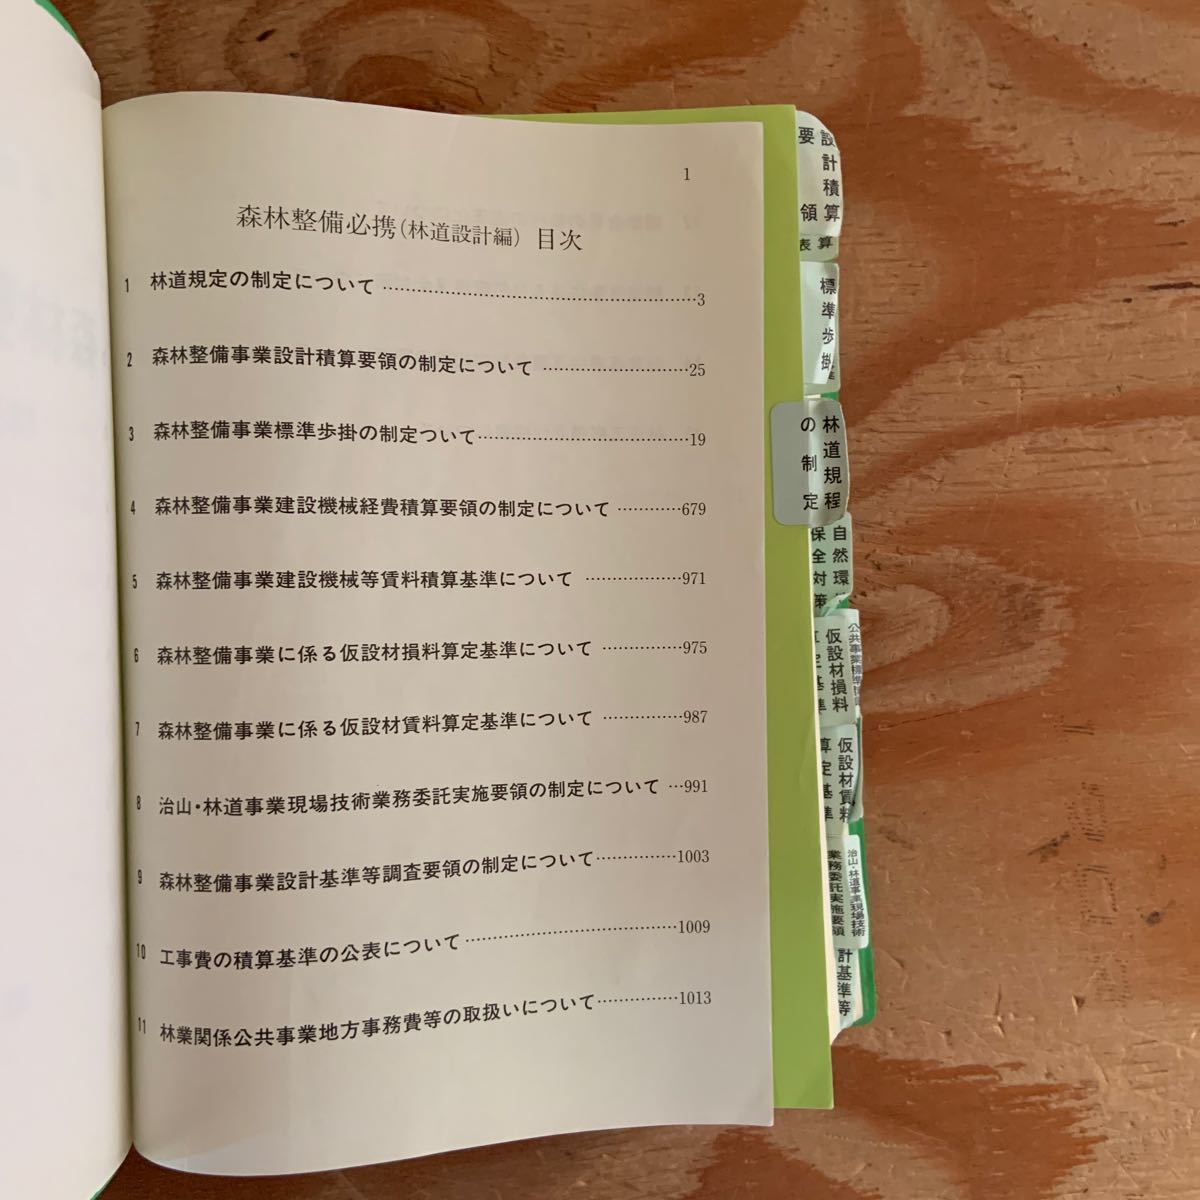 1
森林整備必携(林道設計編) 目次
1 林道規定の制定について……………………………………3
2 森林整備事業設計積算要領の制定について ………………25
3 森林整備事業標準歩掛の制定ついて………………………19
4 森林整備事業建設機械経費積算要領の制定について …………679
5 森林整備事業建設機械等賃料積算基準について ………………971
6 森林整備事業に係る仮設材損料算定基準について ……………975
7 森林整備事業に係る仮設材賃料算定基準について ……………987
8 治山・林道事業現場技術業務委託実施要領の制定について …991
9 森林整備事業設計基準等調査要領の制定について……………1003
10 工事費の積算基準の公表について………………………1009
11 林業関係公共事業地方事務費等の取扱いについて……………1013
設計積算
要領
算
表
標準歩掛
林道規程
の制定
自然環
保全対策
公共事業標準
仮設材損料
算定基準
仮設材賃料
算定基準
治山・林道事業現場技術
業務委託実施要領
計基準等